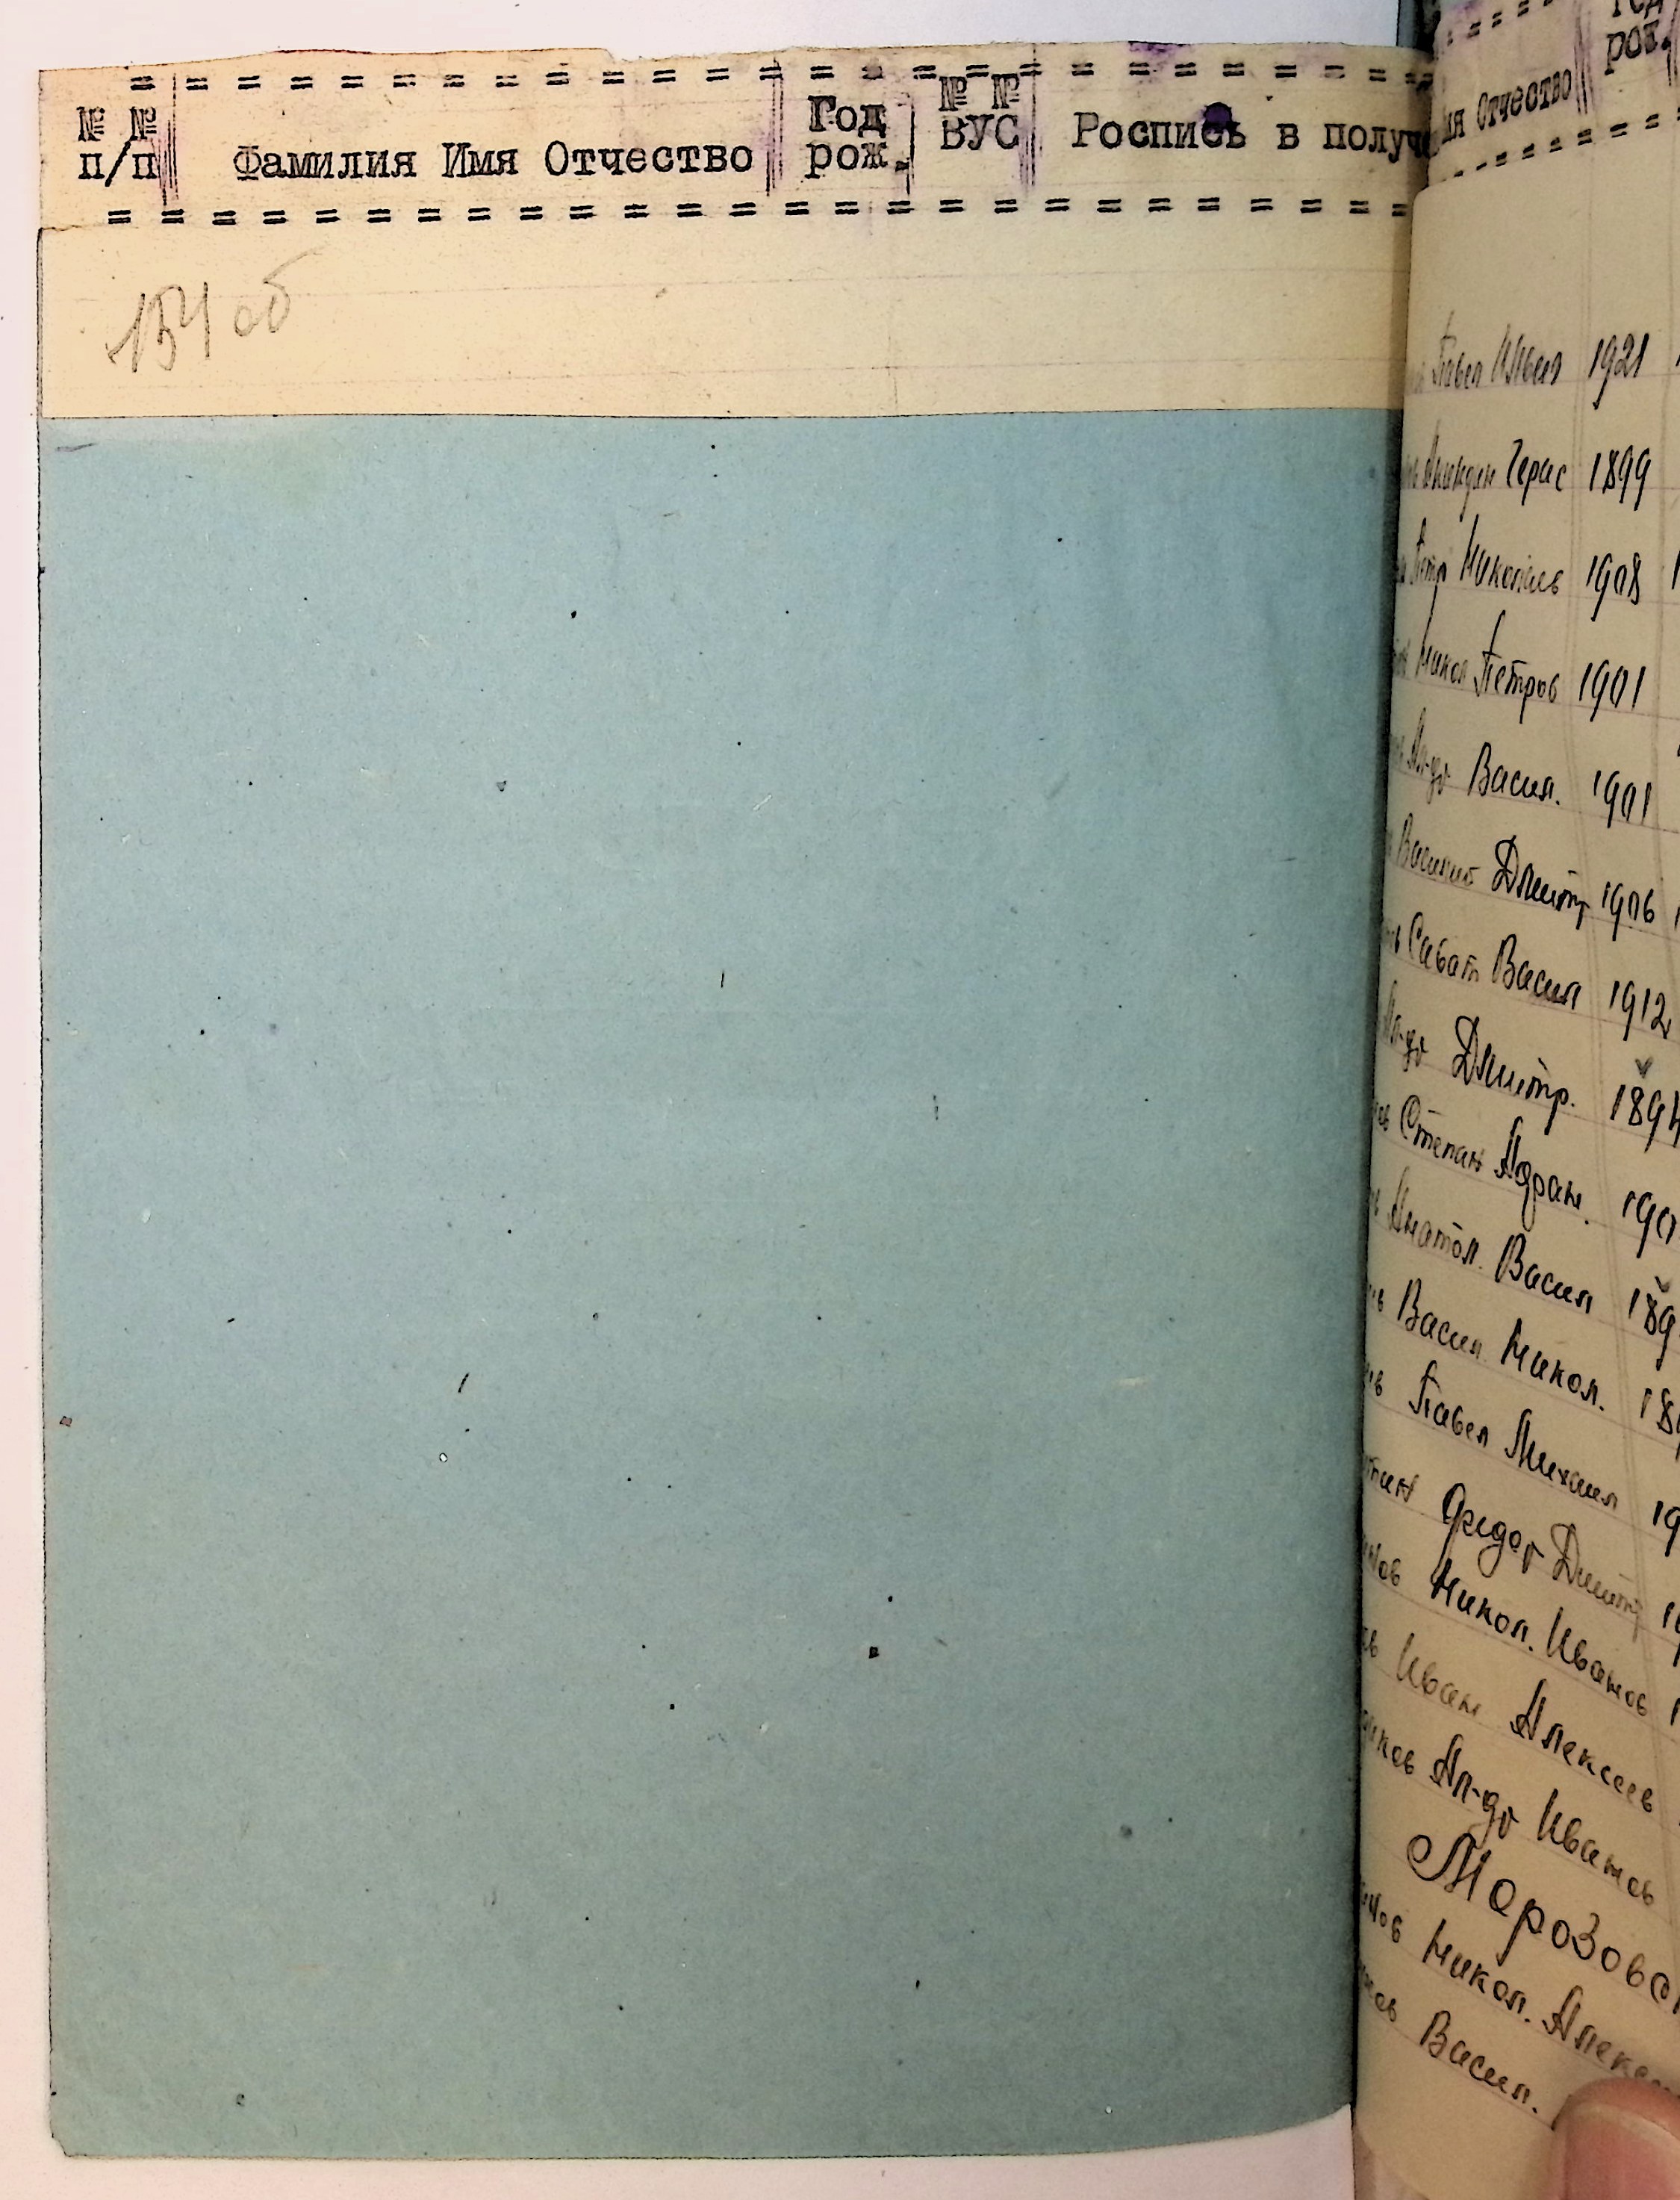 № № п/п Фамилия Имя Отчество Год рож. № № ВУС Роспись в получ
154 об
Отчество рож.
Павел 1921
Герас 1899
Петр Николаев 1908
Никол Петров 1901
Ал-др Васил. 1901
Василий Дмитр 1906
Сават Васил 1912
Ал-др Дмитр. 1894
Степан Адриан. 190
Анатол. Васил 189
Васил. Никол. 18
Павел Михаил 19
Федор Дмитр
Никол. Иванов
Иван Алексеев
Ал-др Иванов
Морозов
Никол. Алекс
Васил.